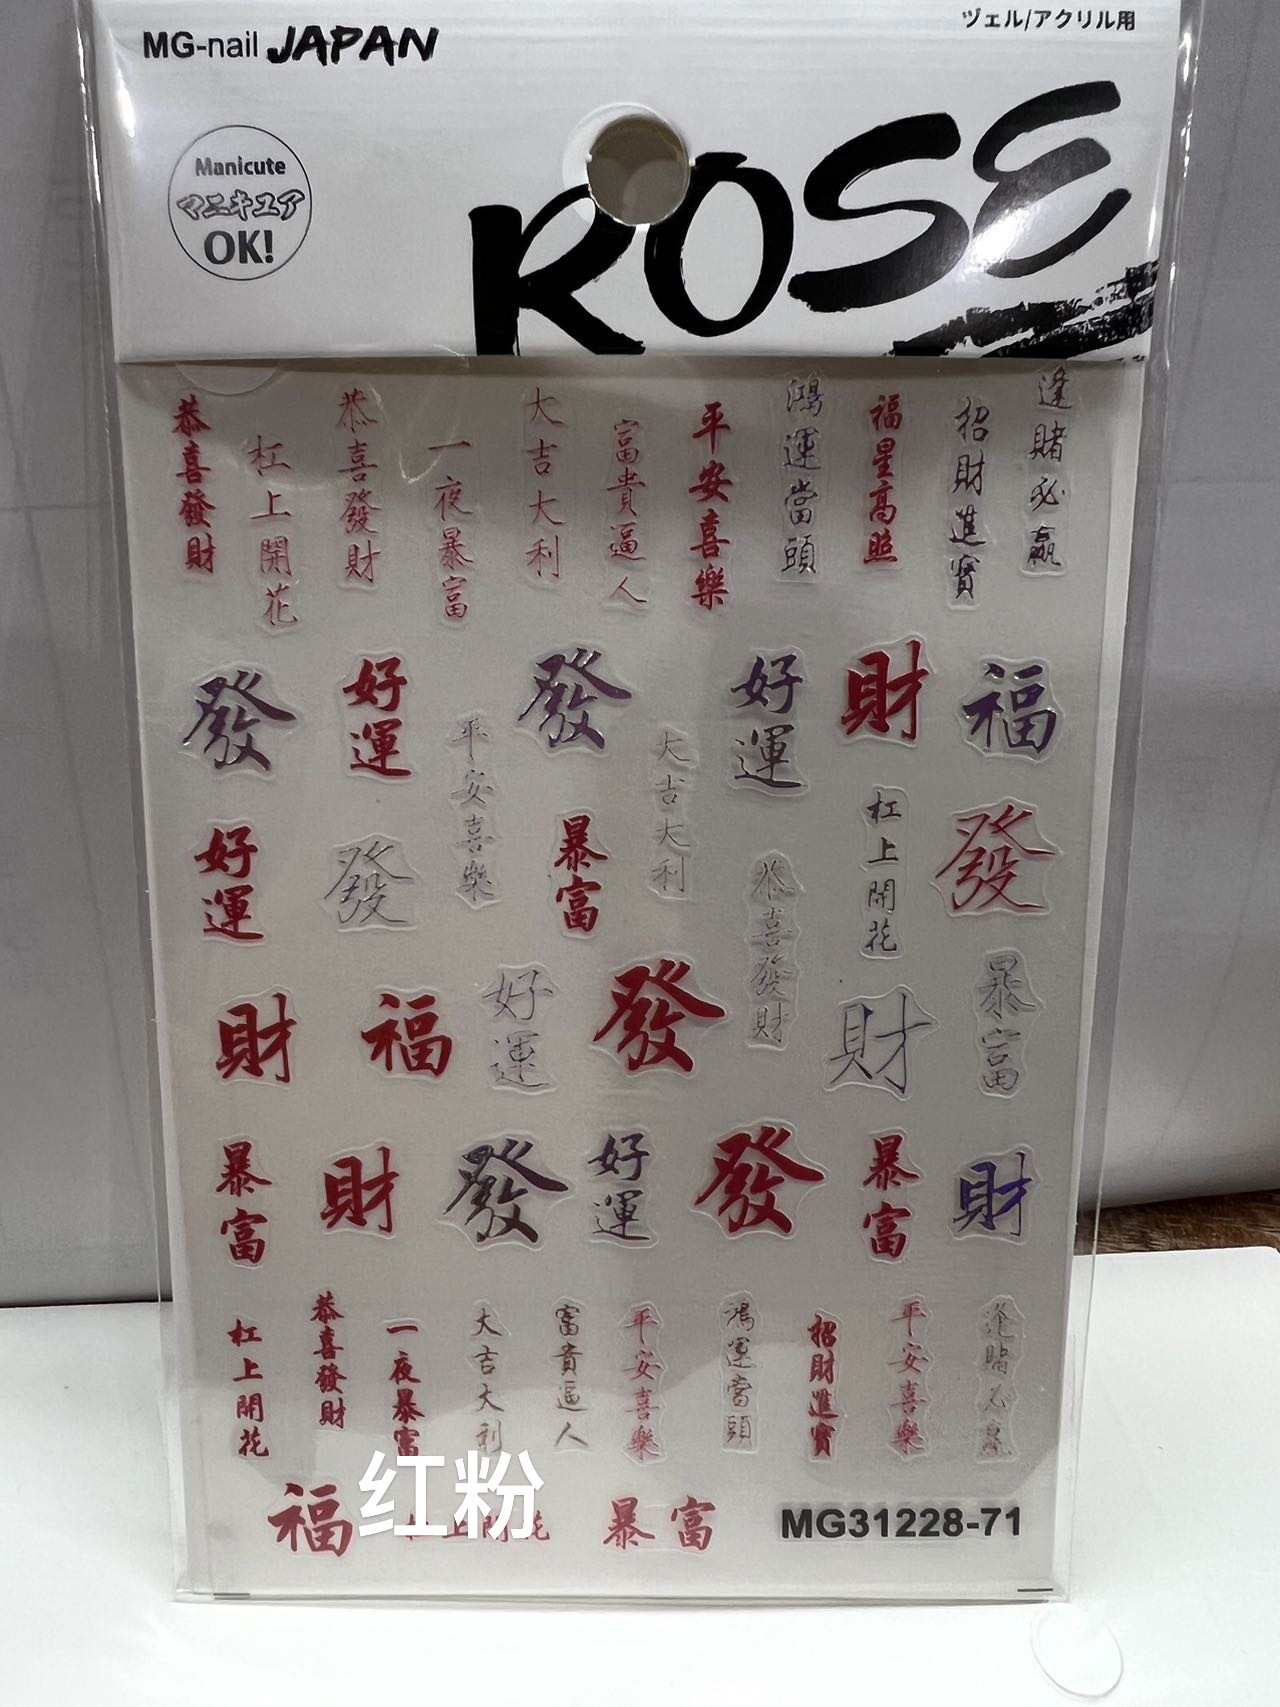 MG-nail JAPAN
ヅェル/アクリル用
Manicute
マニキュア
OK!
ROSE
恭喜發財
杠上開花
恭喜發財
一夜暴富
大吉大利
富貴逼人
平安喜樂
鴻運當頭
福星高照
招財進寶
逢賭必贏
發
好運
發
好運
財
福
平安喜樂
大吉大利
杠上開花
發
好運
發
暴富
恭喜發財
暴富
財
福
好運
發
財
暴富
財
發
好運
發
暴富
財
杠上開花
恭喜發財
一夜暴富
大吉大利
富貴逼人
平安喜樂
鴻運當頭
招財進寶
平安喜樂
逢賭必贏
福
红粉
杠上開花
暴富
MG31228-71